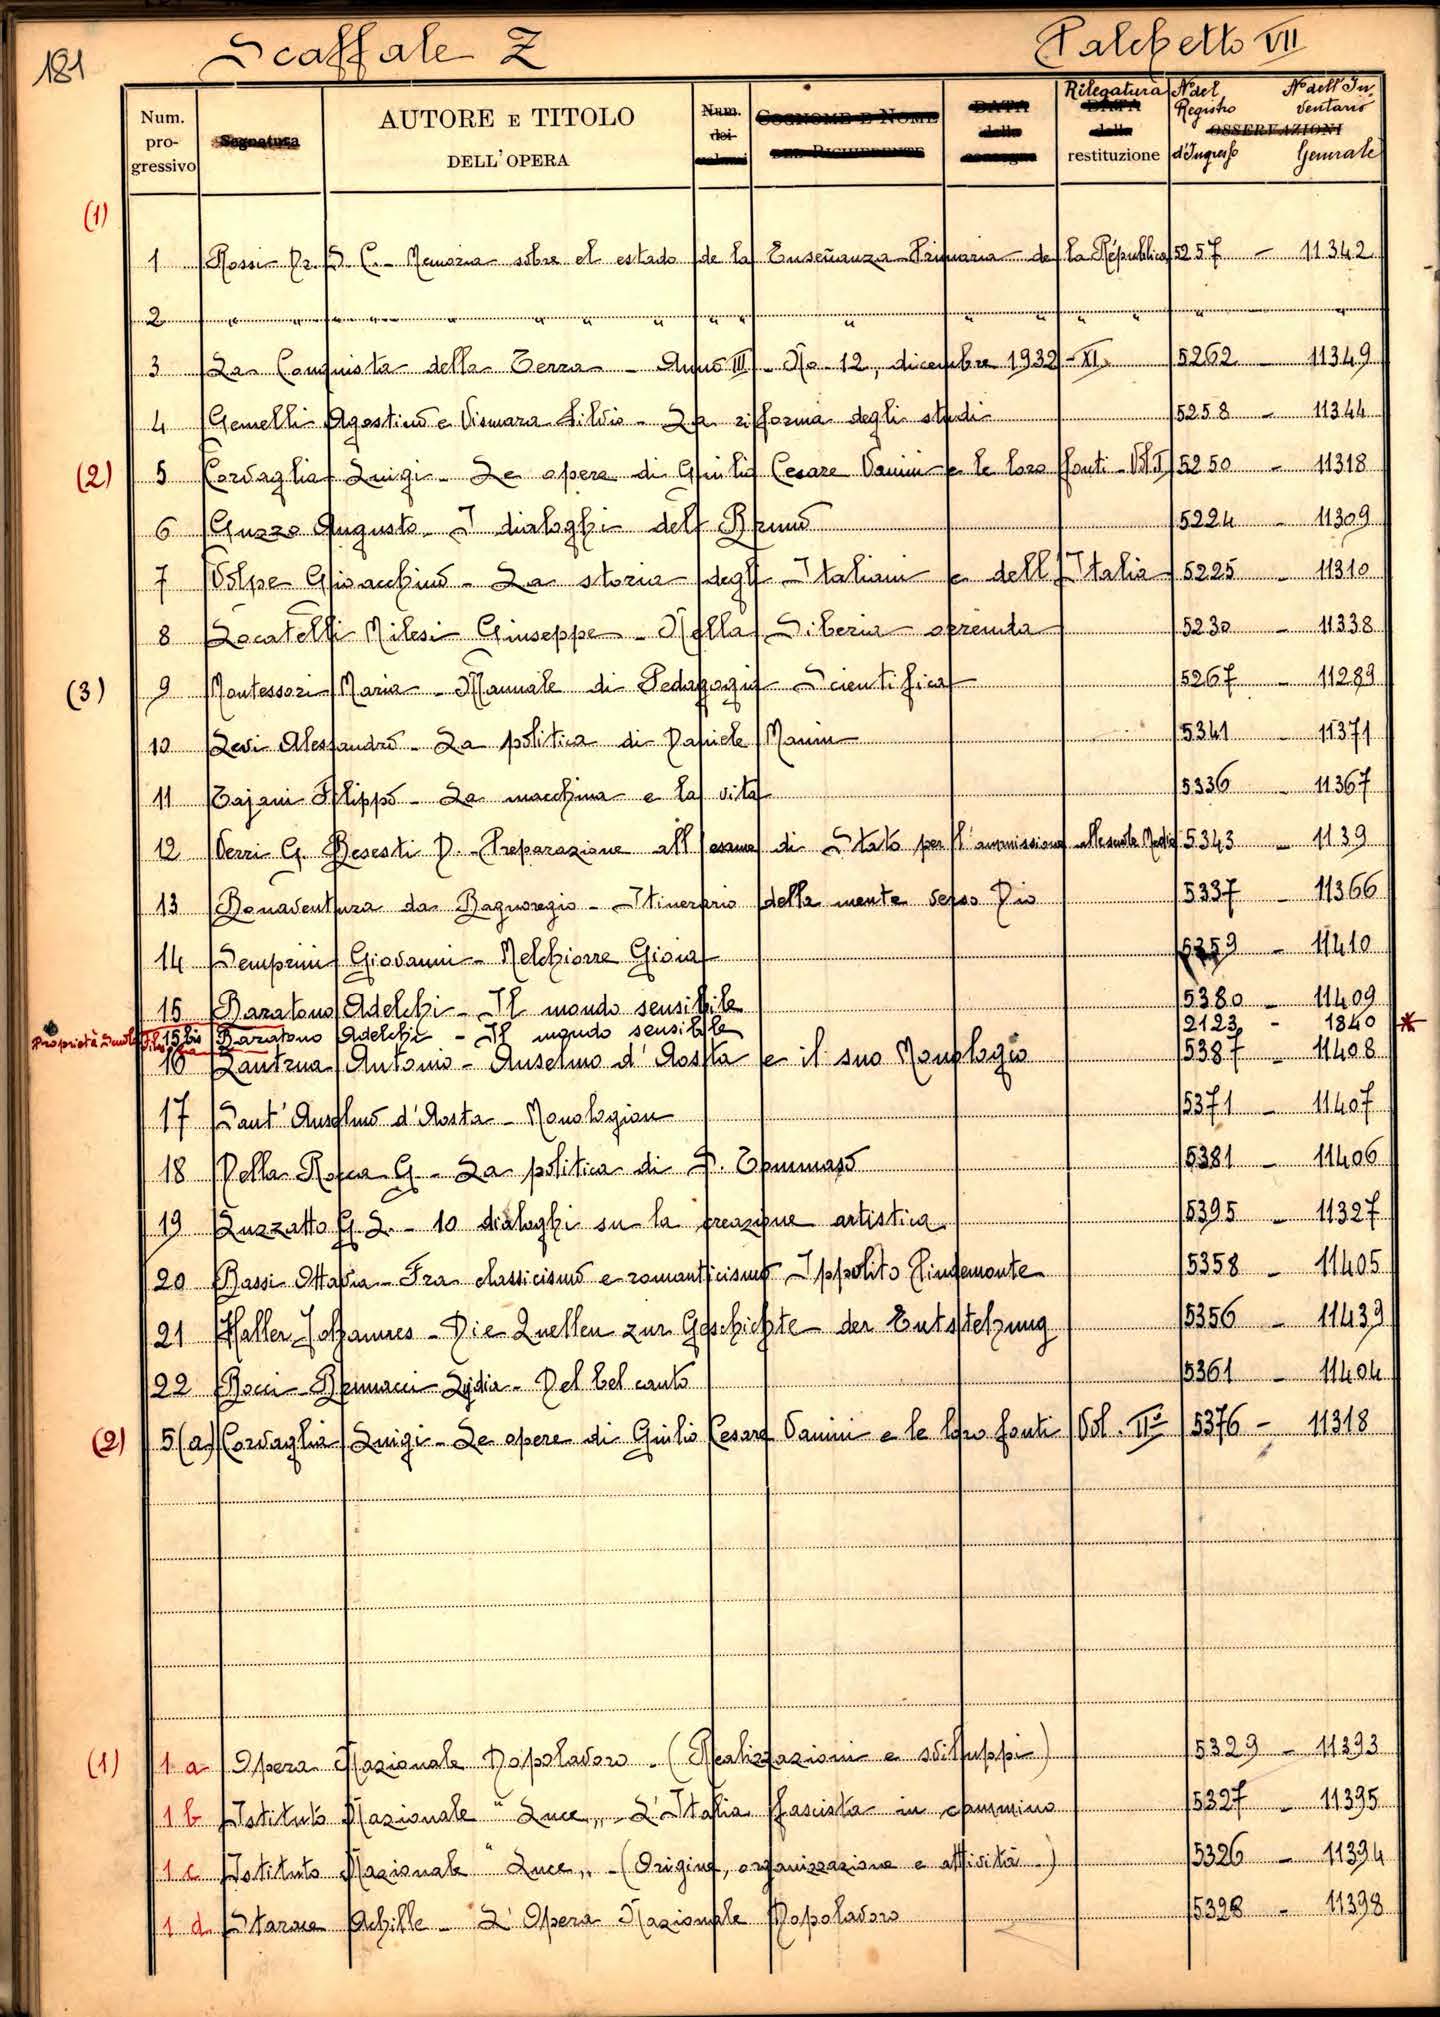 181 Scaffale Z Palchetto VII
Num. progressivo Segnatura AUTORE E TITOLO DELL'OPERA Num. dei volumi COGNOME E NOME DEL RICHIEDENTE DATA della consegna Rilegatura DATA della restituzione N° del Registro d'Ingresso OSSERVAZIONI N° dell'Inventario Generale
(1)
1 Rossi Dr. S. C. - Memoria sobre el estado de la Enseñanza Primaria de la Républica 5257 - 11342
2 " " " " " " " " " " " " " " " "
3 La Conquista della Terra - Anno III - No 12, dicembre 1932 - XI. 5262 - 11349
4 Gemelli Agostino e Vismara Silvio - La riforma degli studi 5258 - 11344
(2) 5 Corvaglia Luigi - Le opere di Giulio Cesare Vanini e le loro fonti - Vol. I 5250 - 11318
6 Guzzo Augusto - I dialoghi del Bruno 5224 - 11309
7 Volpe Gioacchino - La storia degli Italiani e dell'Italia 5225 - 11310
8 Locatelli Milesi Giuseppe - Nella Siberia orrenda 5230 - 11338
(3) 9 Montessori Maria - Manuale di Pedagogia Scientifica 5267 - 11289
10 Levi Alessandro - La politica di Daniele Manin 5341 - 11371
11 Tajani Filippo - La macchina e la vita 5336 - 11367
12 Verri G. Besesti D. - Preparazione all'esame di Stato per l'ammissione alle scuole Medie 5343 - 1139
13 Bonaventura da Bagnoregio - Itinerario della mente verso Dio 5337 - 11366
14 Semprini Giovanni - Melchiorre Gioia 5359 - 11410
15 Baratono Adelchi - Il mondo sensibile 5380 - 11409
Proprietà Scuola Filosofia 15 bis Baratono Adelchi - Il mondo sensibile 2123 - 1840 *
16 Lantrua Antonio - Anselmo d'Aosta e il suo Monologio 5387 - 11408
17 Sant'Anselmo d'Aosta - Monologion 5371 - 11407
18 Della Rocca G. - La politica di S. Tommaso 5381 - 11406
19 Luzzatto G. L. - 10 dialoghi su la creazione artistica 5395 - 11327
20 Bassi Ottavia - Fra classicismo e romanticismo Ippolito Pindemonte 5358 - 11405
21 Haller Johannes - Die Quellen zur Geschichte der Entstehung 5356 - 11439
22 Bocci - Brunacci Lydia - Del bel canto 5361 - 11404
(2) 5(a) Corvaglia Luigi - Le opere di Giulio Cesare Vanini e le loro fonti Vol. II° 5376 - 11318
(1) 1 a Opera Nazionale Dopolavoro - (Realizzazioni e sviluppi) 5329 - 11393
1 b Istituto Nazionale "Luce„ - L'Italia fascista in cammino 5327 - 11395
1 c Istituto Nazionale "Luce„ - (Origine, organizzazione e attività -) 5326 - 11394
1 d Starace Achille - L'Opera Nazionale Dopolavoro 5328 - 11398